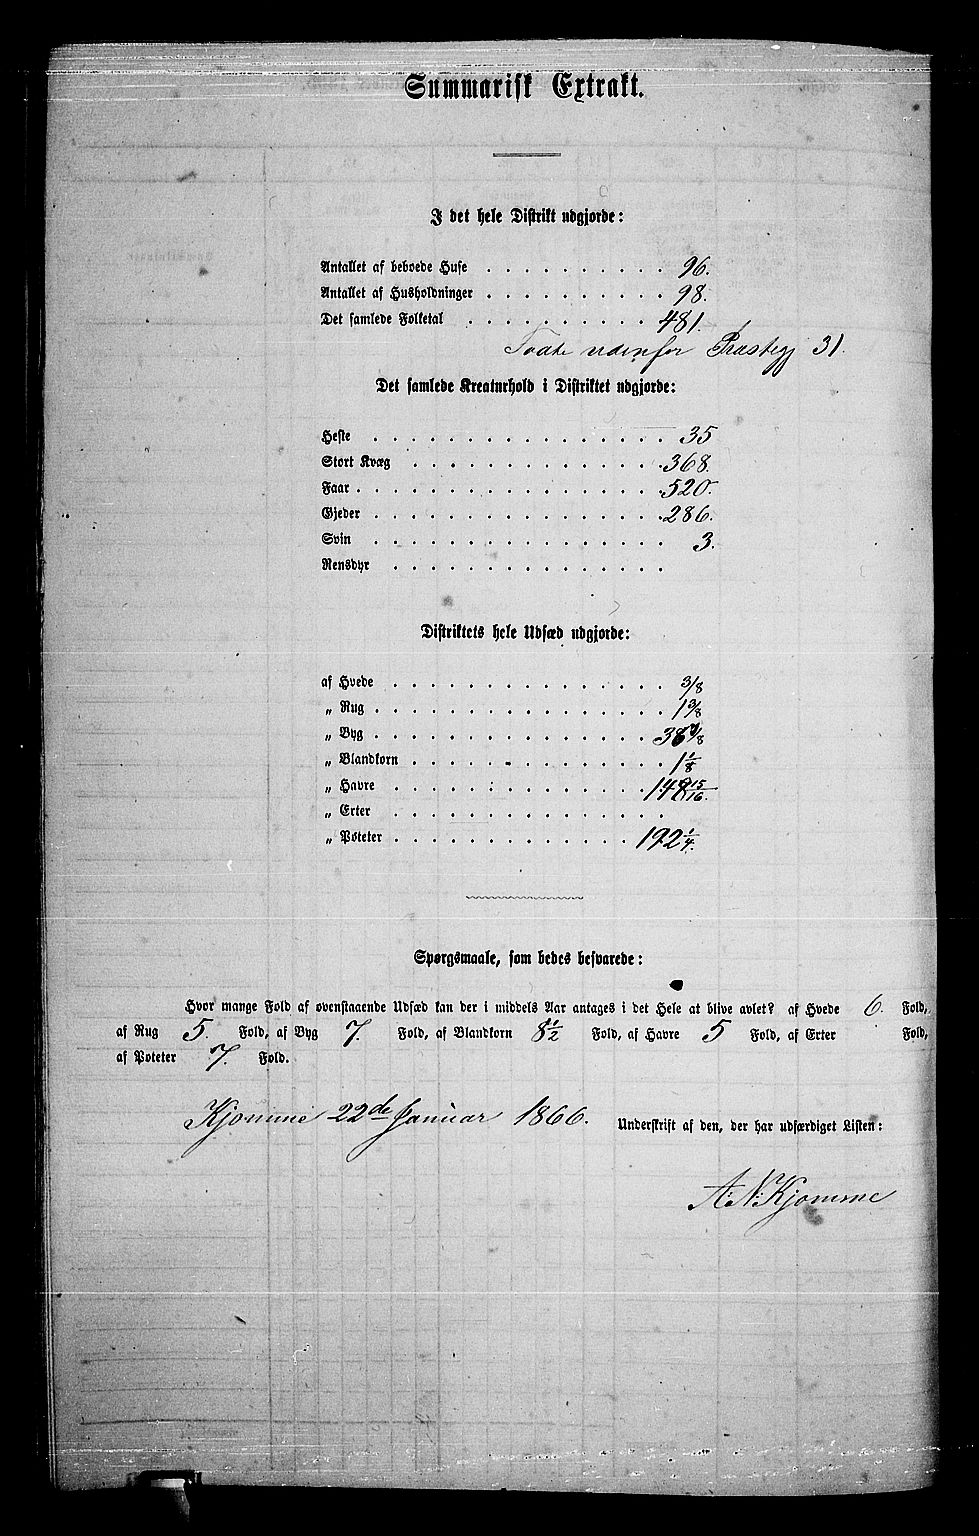 Summarisk Extrakt.
I det hele Distrikt udgjorde:
Antallet af beboede Huse . . . . . . . . . . 96.
Antallet af Husholdninger . . . . . . . . . . 98.
Det samlede Folketal . . . . . . . . . . 481.
Fødte udenfor Præstegj 31.
Det samlede Kreaturhold i Distriktet udgjorde:
Heste . . . . . . . . . . . . . . . . 35
Stort Kvæg . . . . . . . . . . . . . . 368.
Faar . . . . . . . . . . . . . . . . . 520.
Gjeder . . . . . . . . . . . . . . . . 286.
Svin . . . . . . . . . . . . . . . . 3.
Rensdyr . . . . . . . . . . . . . . .
Distriktets hele Udsæd udgjorde:
af Hvede . . . . . . . . . . . . . . . 3/8
„ Rug . . . . . . . . . . . . . . . . 1 3/8
„ Byg . . . . . . . . . . . . . . . . /8
„ Blandkorn . . . . . . . . . . . . . . 1 1/8
„ Havre . . . . . . . . . . . . . . . 148 15/16.
„ Erter . . . . . . . . . . . . . . .
„ Poteter . . . . . . . . . . . . . 192 1/4.
Spørgsmaale, som bedes besvarede:
Hvor mange Fold af ovenstaaende Udsæd kan der i middels Aar antages i det Hele at blive avlet? af Hvede 6. Fold,
af Rug 5. Fold, af Byg 7. Fold, af Blandkorn 8 1/2 Fold, af Havre 5 Fold, af Erter Fold,
af Poteter 7. Fold.
Kjomme 22de Januar 1866.
Underskrift af den, der har udfærdiget Listen:
A: N: Kjomme